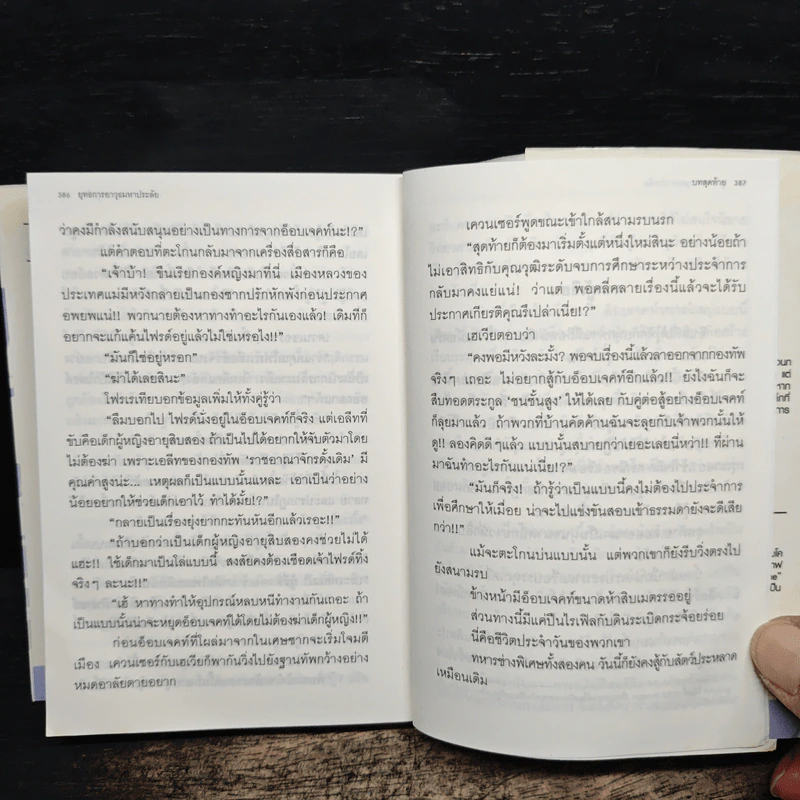 386 ยุทธการอาวุธมหาประลัย
ว่าคงมีกำลังสนับสนุนอย่างเป็นทางการจากอ็อบเจคท์นะ!?”
แต่คำตอบที่ตะโกนกลับมาจากเครื่องสื่อสารก็คือ
“เจ้าบ้า! ขืนเรียกองค์หญิงมาที่นี่ เมืองหลวงของ
ประเทศแม่มีหวังกลายเป็นกองซากปรักหักพังก่อนประกาศ
อพยพแน่!! พวกนายต้องหาทางทำอะไรกันเองแล้ว! เดิมทีก็
อยากจะแก้แค้นไพรด์อยู่แล้วไม่ใช่เหรอไง!!”
“มันก็ใช่อยู่หรอก”
“ฆ่าได้เลยสินะ”
โฟรเรเทียบอกข้อมูลเพิ่มให้ทั้งคู่รู้ว่า
“ลืมบอกไป ไพรด์นั่งอยู่ในอ็อบเจคท์ก็จริง แต่เอลีทที่
ขับคือเด็กผู้หญิงอายุสิบสอง ถ้าเป็นไปได้อยากให้จับตัวมาโดย
ไม่ต้องฆ่า เพราะเอลีทของกองทัพ ‘ราชอาณาจักรดั้งเดิม’ มี
คุณค่าสูงน่ะ... เหตุผลก็เป็นแบบนั้นแหละ เอาเป็นว่าอย่าง
น้อยอยากให้ช่วยเด็กเอาไว้ ทำได้มั้ย!?”
“กลายเป็นเรื่องยุ่งยากกะทันหันอีกแล้วเรอะ!!”
“ถ้าบอกว่าเป็นเด็กผู้หญิงอายุสิบสองคงช่วยไม่ได้
แฮะ!! ใช้เด็กมาเป็นโล่แบบนี้ สงสัยคงต้องเชือดเจ้าไพรด์ทิ้ง
จริงๆ ละนะ!!”
“เฮ้ หาทางทำให้อุปกรณ์หลบหนีทำงานกันเถอะ ถ้า
เป็นแบบนั้นน่าจะหยุดอ็อบเจคท์ได้โดยไม่ต้องฆ่าเด็กผู้หญิง!!”
ก่อนอ็อบเจคท์ที่โผล่มาจากในเศษซากจะเริ่มโจมตี
เมือง เควนเซอร์กับเฮเวียก็พากันวิ่งไปยังฐานทัพกว้างอย่าง
หมดอาลัยตายอยาก
บทสุดท้าย 387
เควนเซอร์พูดขณะเข้าใกล้สนามรบนรก
“สุดท้ายก็ต้องมาเริ่มตั้งแต่หนึ่งใหม่สินะ อย่างน้อยถ้า
ไม่เอาสิทธิกับคุณวุฒิระดับจบการศึกษาระหว่างประจำการ
กลับมาคงแย่แน่! ว่าแต่ พอคลี่คลายเรื่องนี้แล้วจะได้รับ
ประกาศเกียรติคุณรึเปล่าเนี่ย!?”
เฮเวียตอบว่า
“คงพอมีหวังละมั้ง? พอจบเรื่องนี้แล้วลาออกจากกองทัพ
จริงๆ เถอะ ไม่อยากสู้กับอ็อบเจคท์อีกแล้ว!! ยังไงฉันก็จะ
สืบทอดตระกูล ‘ชนชั้นสูง’ ให้ได้เลย กับคู่ต่อสู้อย่างอ็อบเจคท์
ก็ลุยมาแล้ว ถ้าพวกที่บ้านคัดค้านฉันจะลุยกับเจ้าพวกนั้นให้
ดู!! ลองคิดดีๆ แล้ว แบบนั้นสบายกว่าเยอะเลยนี่หว่า!! ที่ผ่าน
มาฉันทำอะไรกันแน่เนี่ย!?”
“มันก็จริง! ถ้ารู้ว่าเป็นแบบนี้คงไม่ต้องไปประจำการ
เพื่อศึกษาให้เมื่อย น่าจะไปแข่งขันสอบเข้าธรรมดายังจะดีเสีย
กว่า!!”
แม้จะตะโกนบ่นแบบนั้น แต่พวกเขาก็ยังรีบวิ่งตรงไป
ยังสนามรบ
ข้างหน้ามีอ็อบเจคท์ขนาดห้าสิบเมตรรออยู่
ส่วนทางนี้มีแค่ปืนไรเฟิลกับดินระเบิดกระจ้อยร่อย
นี่คือชีวิตประจำวันของพวกเขา
ทหารช่างพิเศษทั้งสองคน วันนี้ก็ยังคงสู้กับสัตว์ประหลาด
เหมือนเดิม